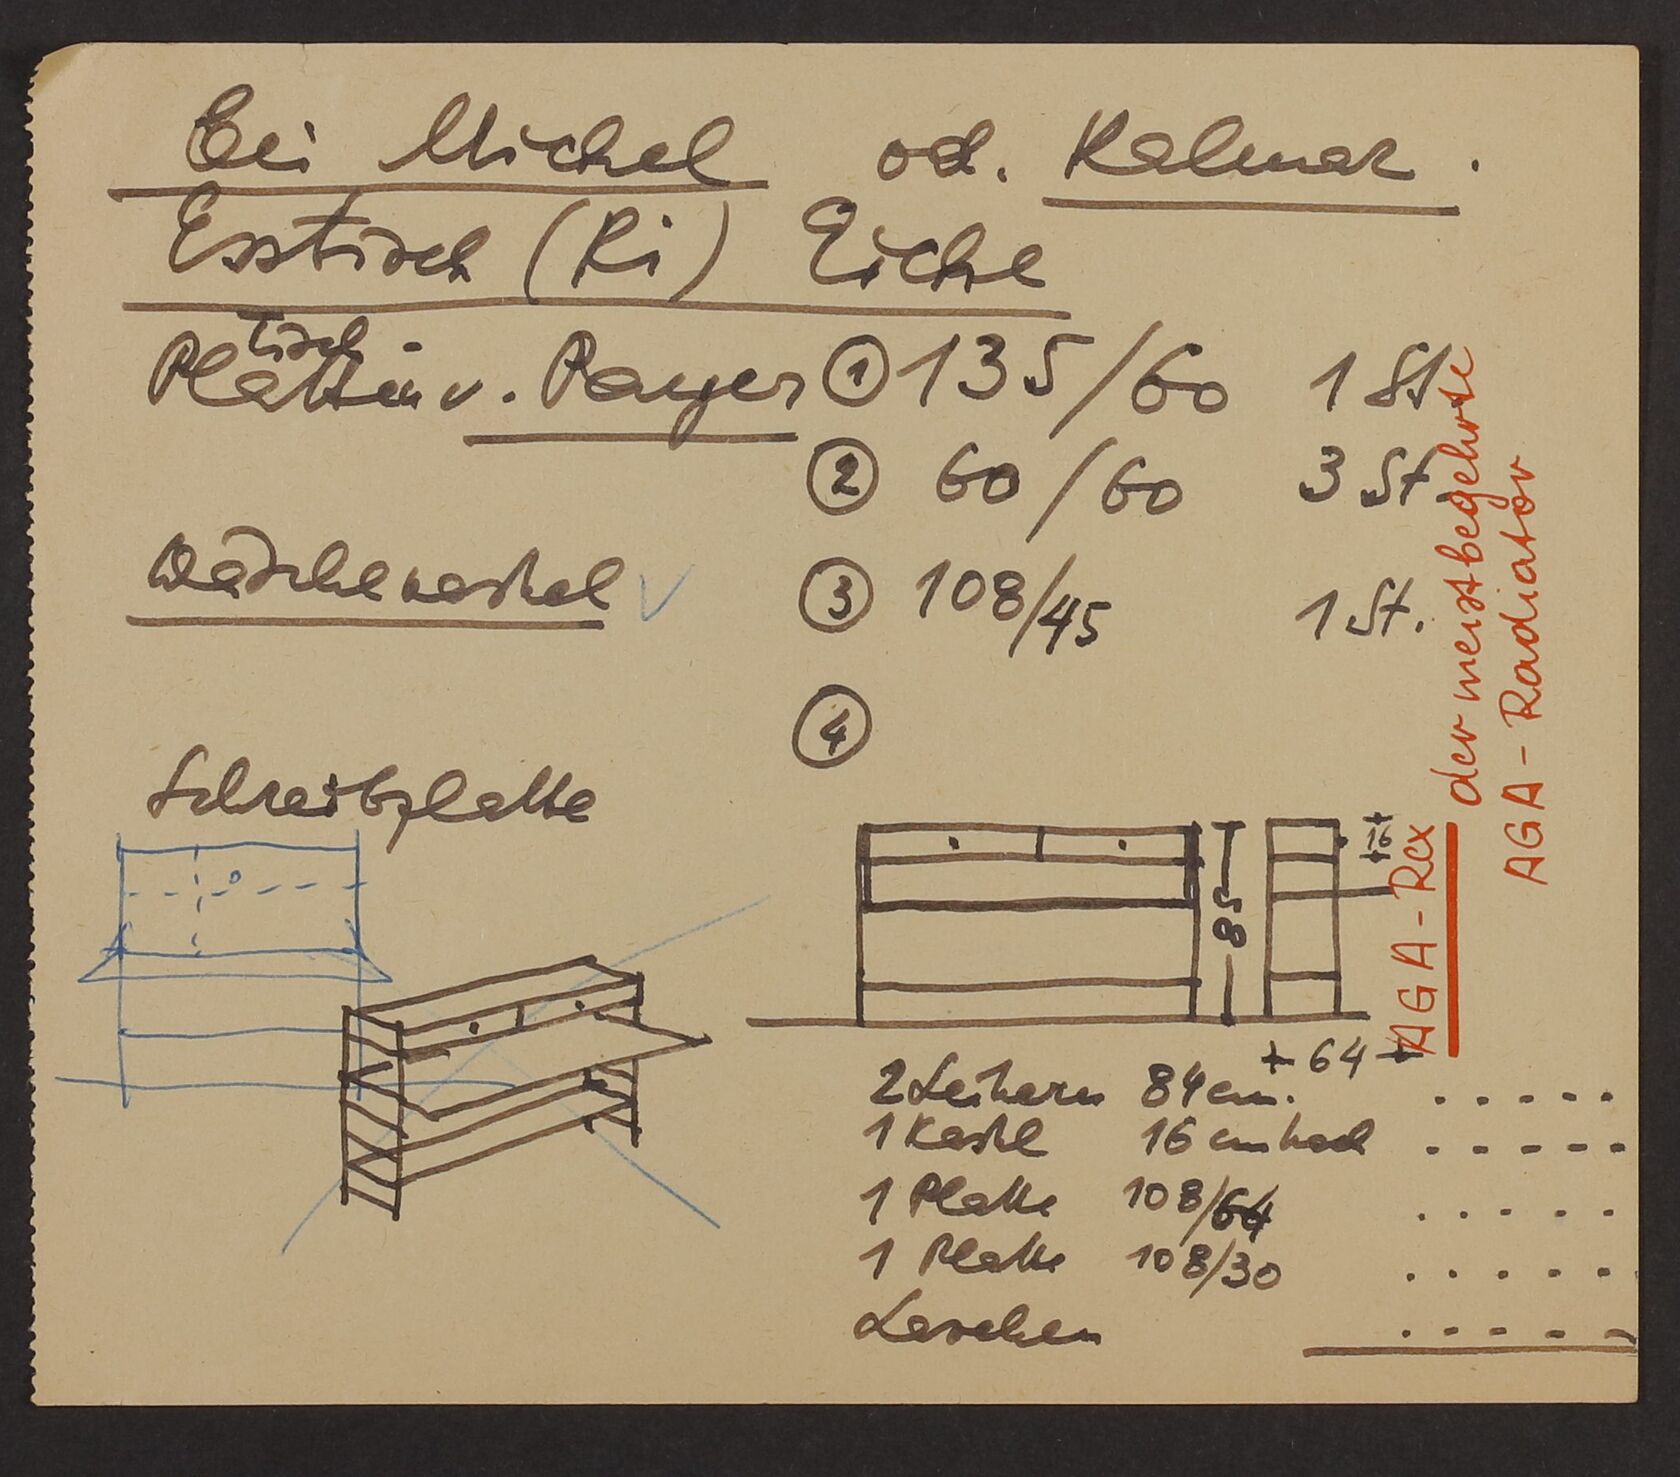 bei Michel od. Kalmar.
Esstisch (Ri) Eiche
tisch-
Platten v. Payer ① 135/60 1 St.
② 60/60 3 St.
Wäschewaschel ③ 108/45 1 St.
④
Schreibplatte
16
85
64
2 Leitern 84 cm. . . . . .
1 Kastl 16 cm hoch . . . . .
1 Platte 108/64 . . . . .
1 Platte 108/30 . . . . .
. . . . .
AGA-Rex der meistbegehrte
AGA-Radiator